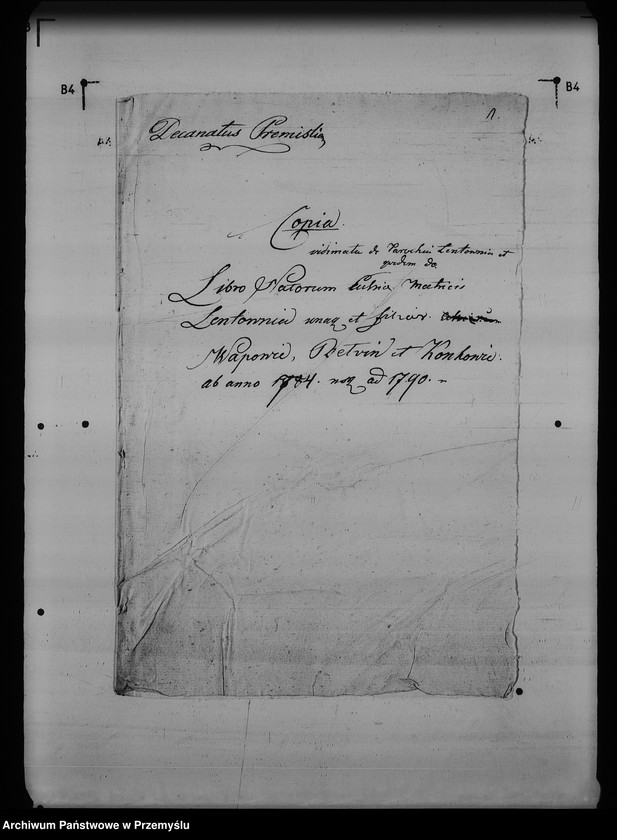 B4
B4
1.
Decanatus Premislie
Copia.
vidimata de Parochia Lentownia et
Libro Natorum Matricis
Lentownia unaq et filiar.
Wapowce, Betwin et Konkowce.
ab anno 1784. usq ad 1790.
Archiwum Państwowe w Przemyślu